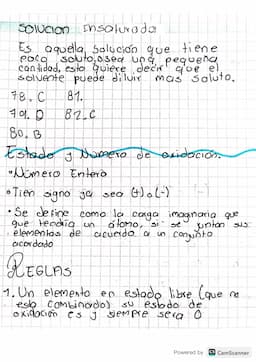 Solucion Insaturada
Es aquella solución que tiene
poco soluto, osea una pequeña
cantidad, esto quiere decir que el
solvente puede diluir mas soluto.
78. C 81.
79. D 82. C
80. B
Estado y Numero de oxidacion.
•Número Entero
•Tien signo ya sea (+) o (-)
•Se define como la carga imaginaria que
que tendria un átomo, si se juntan sus
elementos de acuerdo a un conjunto
acordado
REGLAS
1. Un elemento en estado libre (que no
esta combinado) su estado de
oxidación es y siempre sera 0
Powered by CS CamScanner